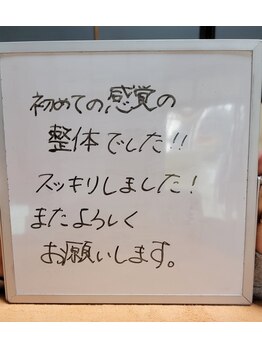 初めての感覚の
整体でした!!
スッキリしました!
またよろしく
お願いします。